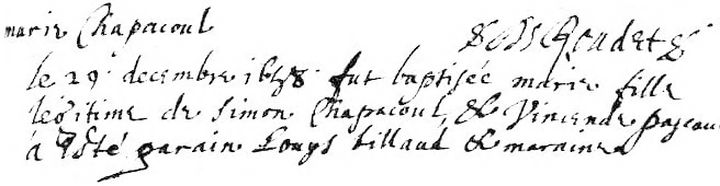 marie Chapacoul
le 29 decembre 1658 fut baptisée marie fille
légitime de Simon Chapacoul, & Vincende pascau
à esté parain Louys billaud & maraine